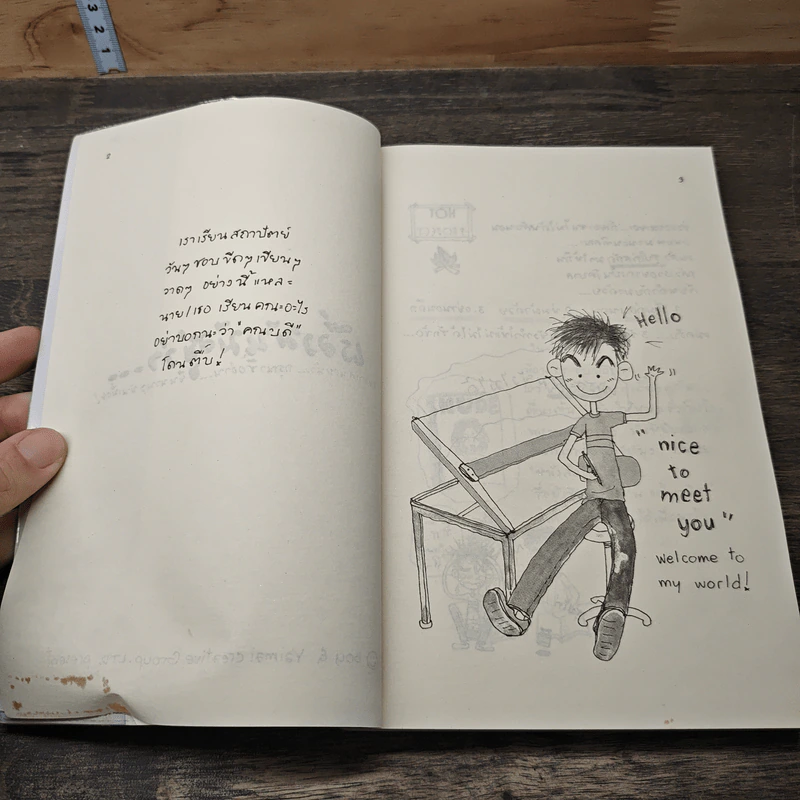 2
เราเรียน สถาปัตย์
วันๆ ชอบ ขีดๆ เขียนๆ
วาดๆ อย่าง นี้ แหละ
นาย/เธอ เรียน คณะอะไร
อย่าบอกนะว่า "คณบดี"
โดนตื้บ!
3
"Hello
"nice
to
meet
you"
welcome to
my world!
3 2 1